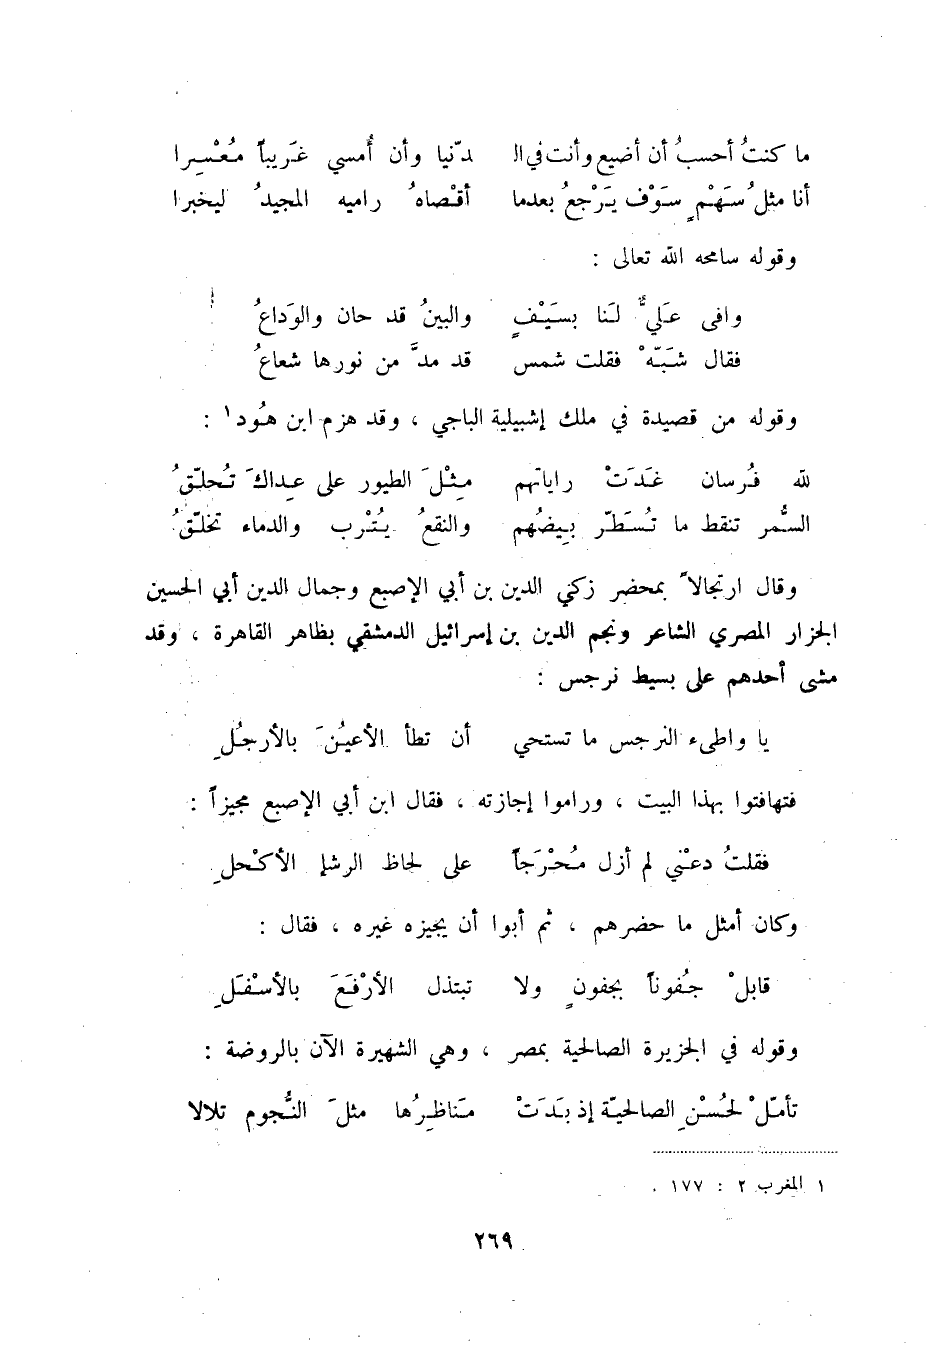 ما كنتُ أحسبُ أن أضيع وأنت في الـ دنّيا وأن أُمسي غَريباً مُعْسِرا
أنا مثلُ سَهْمٍ سَوْف يَرْجعُ بعدما أقْصاهُ راميه المجيدُ ليخبرا
وقوله سامحه الله تعالى :
وافى عَليٌّ لَنا بسَيْفٍ والبينُ قد حان والوَداعُ
فقال شَبّهْ فقلت شمس قد مدَّ من نورها شعاعُ
وقوله من قصيدة في ملك إشبيلية الباجي ، وقد هزم ابن هُود١ :
لله فُرسان غَدَتْ راياتهم مِثْلَ الطيور على عِداكَ تُحلّقُ
السُّمر تنقط ما تُسَطّر بِيضُهم والنقعُ يُتْرب والدماء تخلّقُ
وقال ارتجالاً بمحضر زكي الدين بن أبي الإصبع وجمال الدين أبي الحسين
الجزار المصري الشاعر ونجم الدين بن إسرائيل الدمشقي بظاهر القاهرة ، وقد
مشى أحدهم على بسيط نرجس :
يا واطىء النرجس ما تستحي أن تطأ الأعيُنَ بالأرجُلِ
فتهافتوا بهذا البيت ، وراموا إجازته ، فقال ابن أبي الإصبع مجيزاً :
فقلتُ دعْني لم أزل مُحْرَجاً على لحاظ الرشإ الأكْحلِ
وكان أمثل ما حضرهم ، ثم أبوا أن يجيزه غيره ، فقال :
قابلْ جُفوناً بجفونٍ ولا تبتذل الأرْفَعَ بالأسْفَلِ
وقوله في الجزيرة الصالحية بمصر ، وهي الشهيرة الآن بالروضة :
تأمّلْ لحُسْنِ الصالحيّة إذ بَدَتْ مَناظِرُها مثلَ النُّجوم تلالا
١ المغرب ٢ : ١٧٧ .
٢٦٩